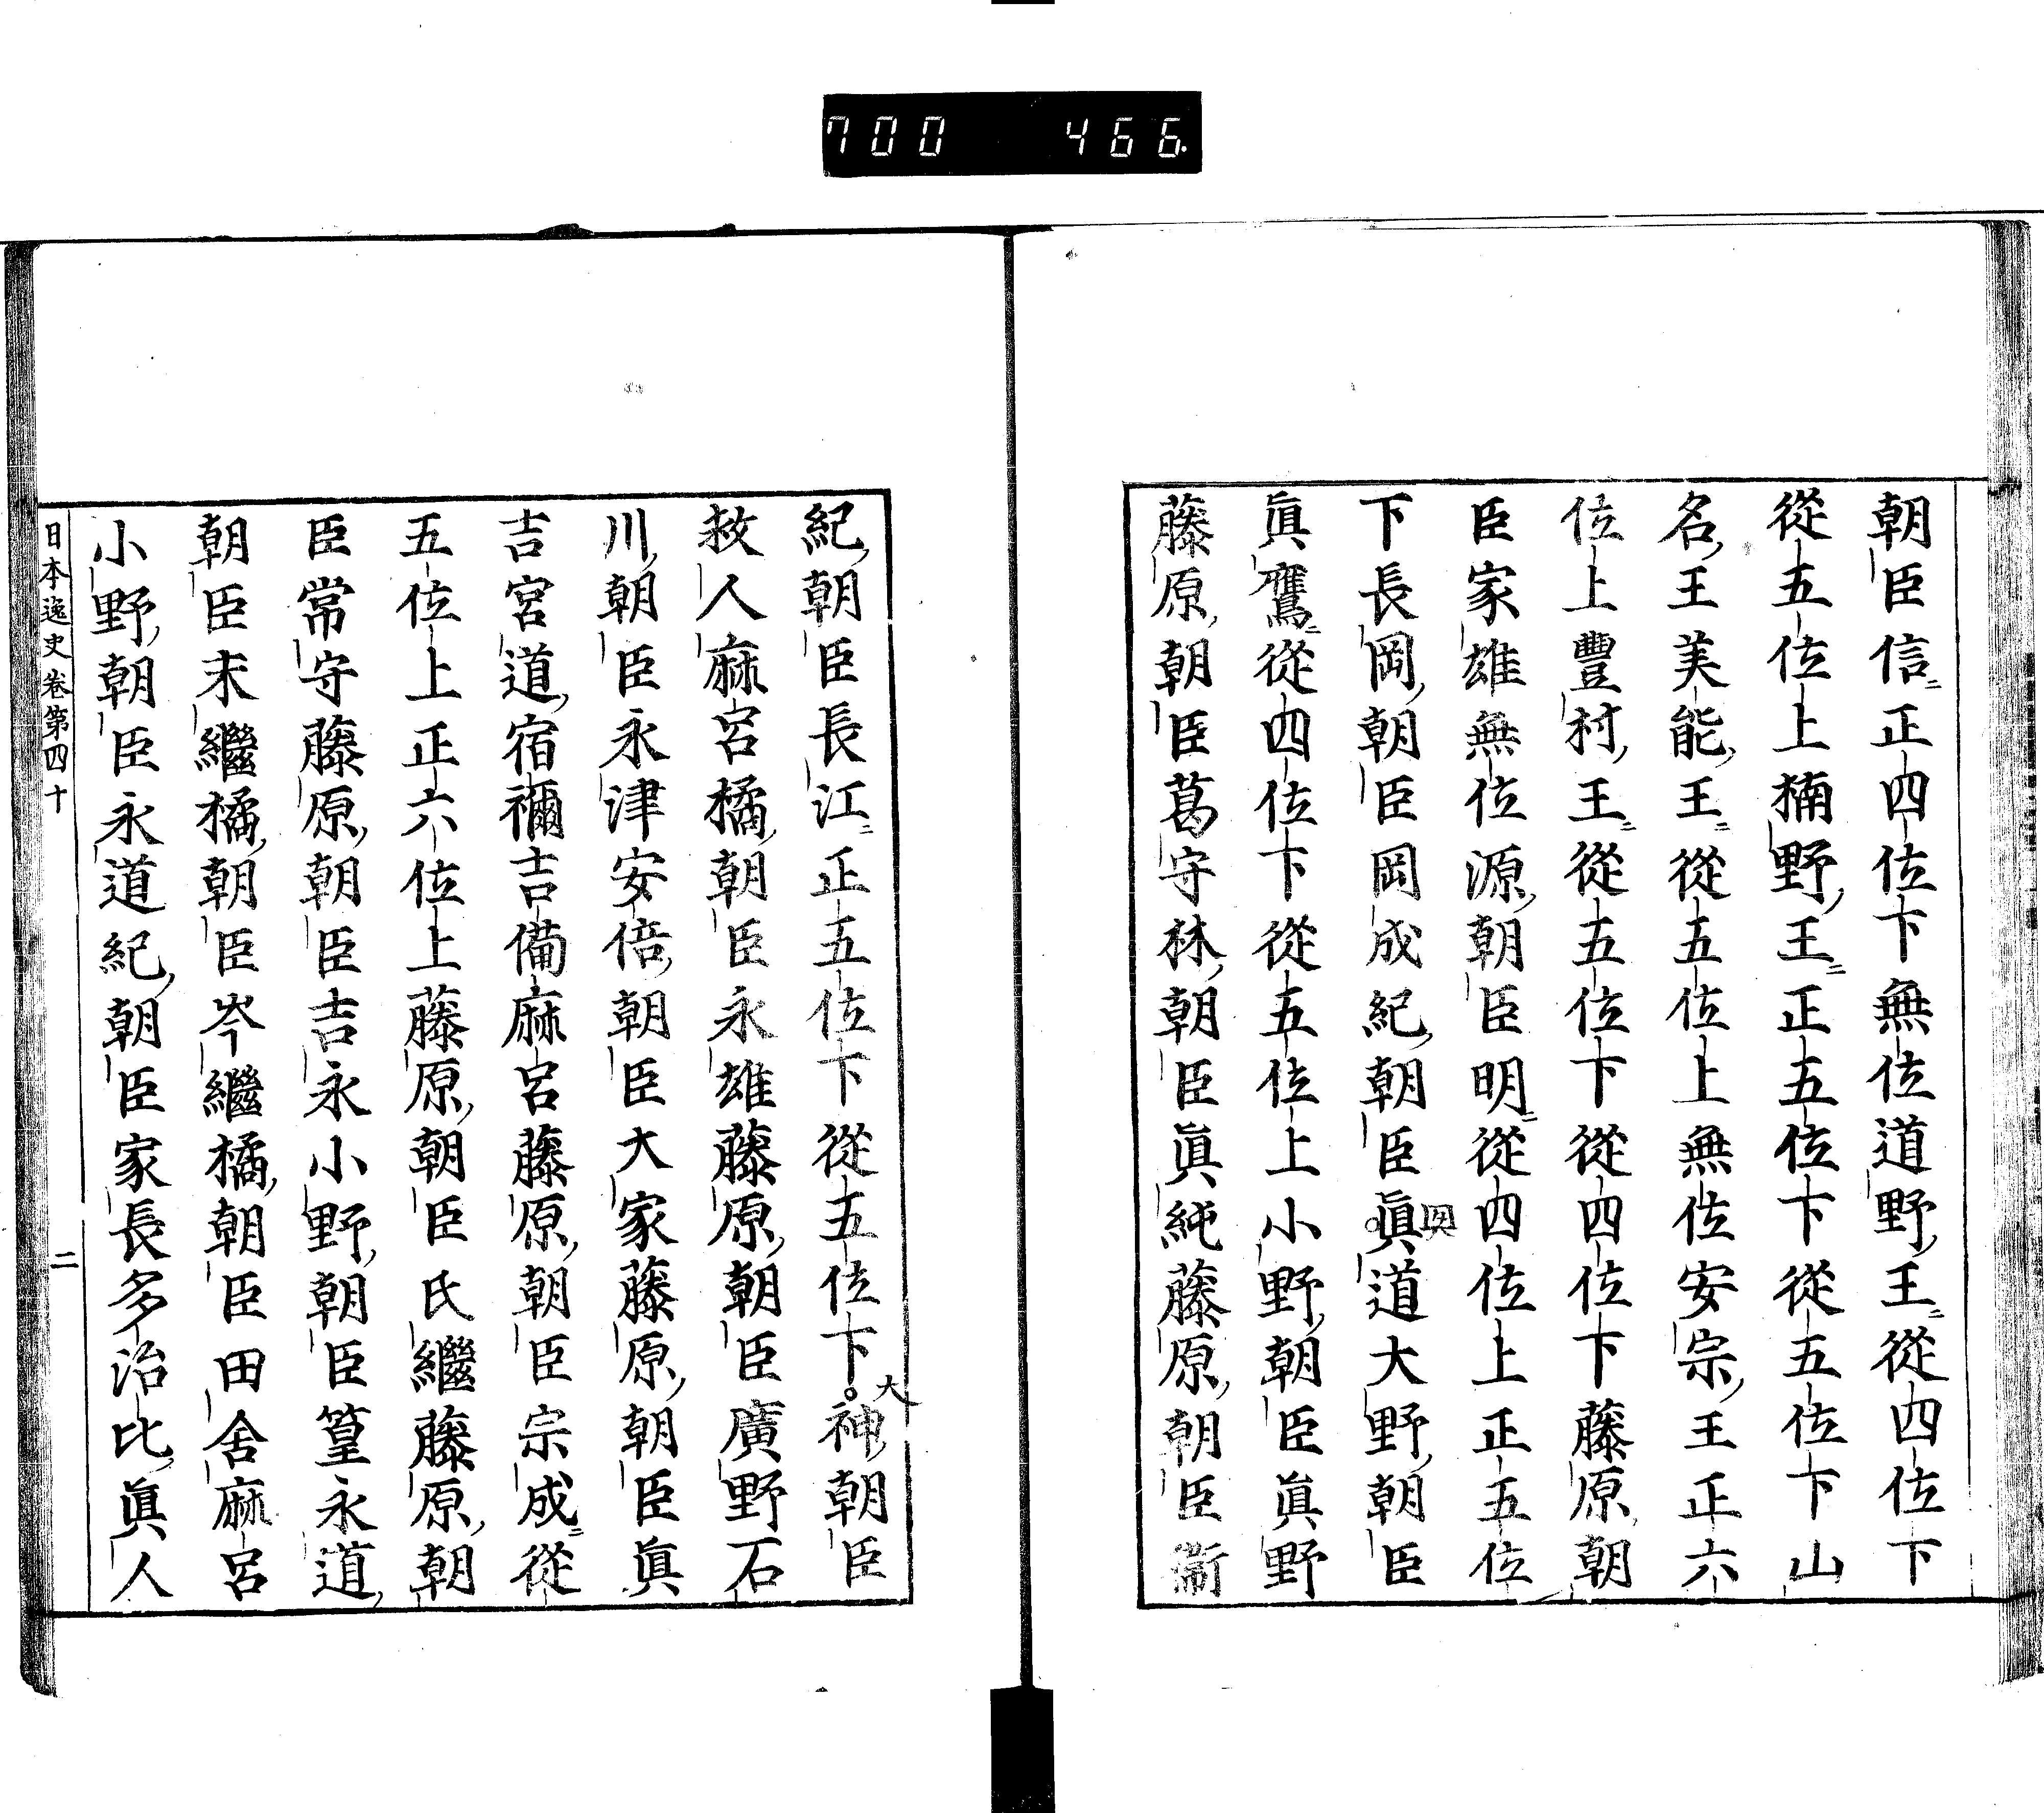 700 466.
朝臣信正四位下無位道野王從四位下
從五位上楠野王正五位下從五位下山
名王美能王從五位上無位安宗王正六
位上豐村王從五位下從四位下藤原朝
臣家雄無位源朝臣明從四位上正五位
下長岡朝臣岡成紀朝臣眞道大野朝臣
眞鷹從四位下從五位上小野朝臣眞野
藤原朝臣葛守林朝臣眞純藤原朝臣衞
紀朝臣長江正五位下從五位下神朝臣
大
救人麻呂橘朝臣永雄藤原朝臣廣野石
川朝臣永津安倍朝臣大家藤原朝臣眞
吉宮道宿禰吉備麻呂藤原朝臣宗成從
五位上正六位上藤原朝臣氏繼藤原朝
臣常守藤原朝臣吉永小野朝臣篁永道
朝臣末繼橘朝臣岑繼橘朝臣田舍麻呂
小野朝臣永道紀朝臣家長多治比眞人
日本逸史卷第四十 二